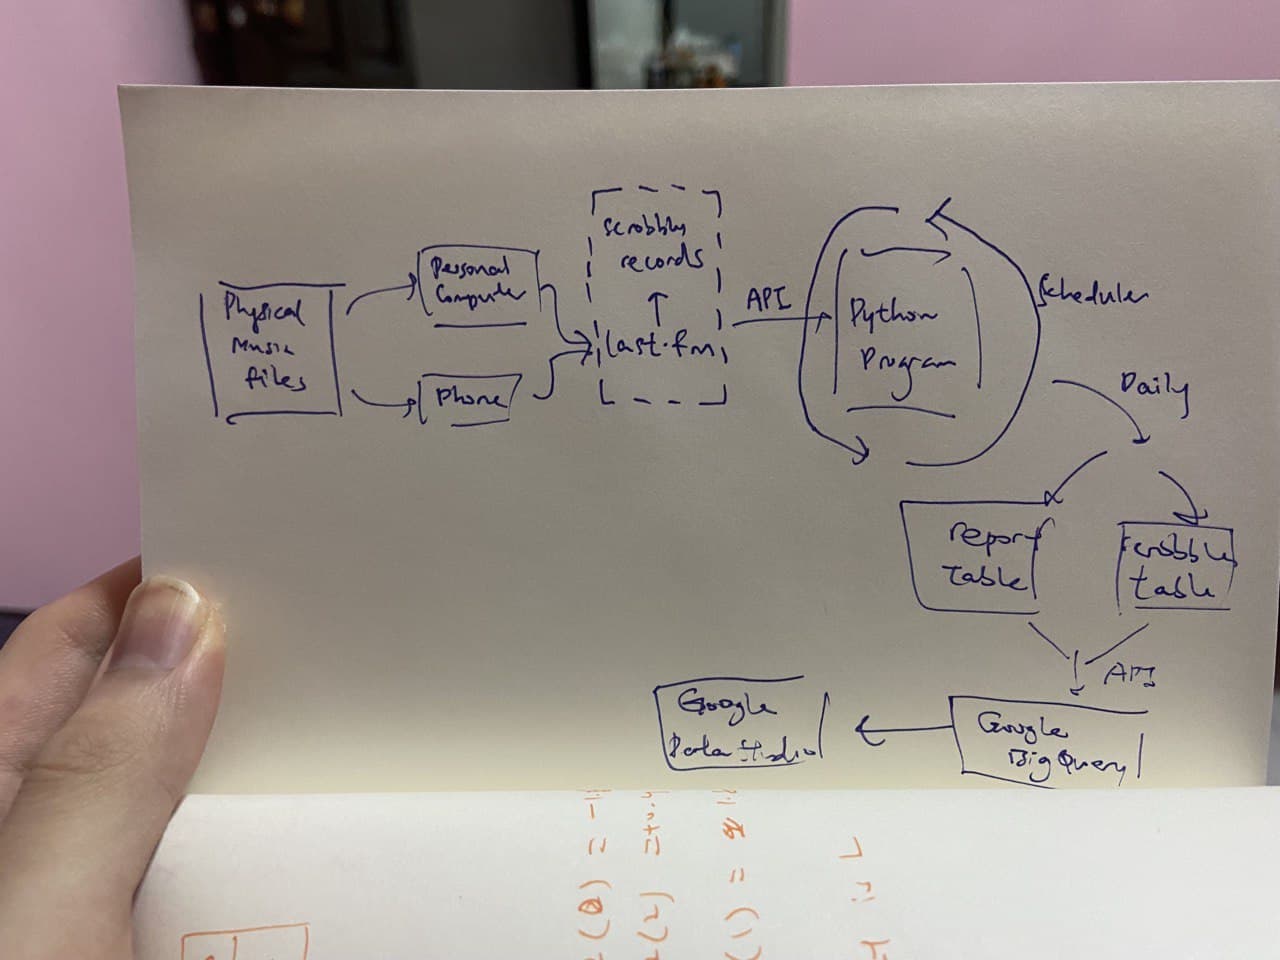 Physical
Music
files
Personal
Computer
Phone
scrobbling
records
last.fm
API
Python
Program
Scheduler
Daily
report
table
scrobble
table
API
Google
BigQuery
Google
Data Studio
(2)
(1) =